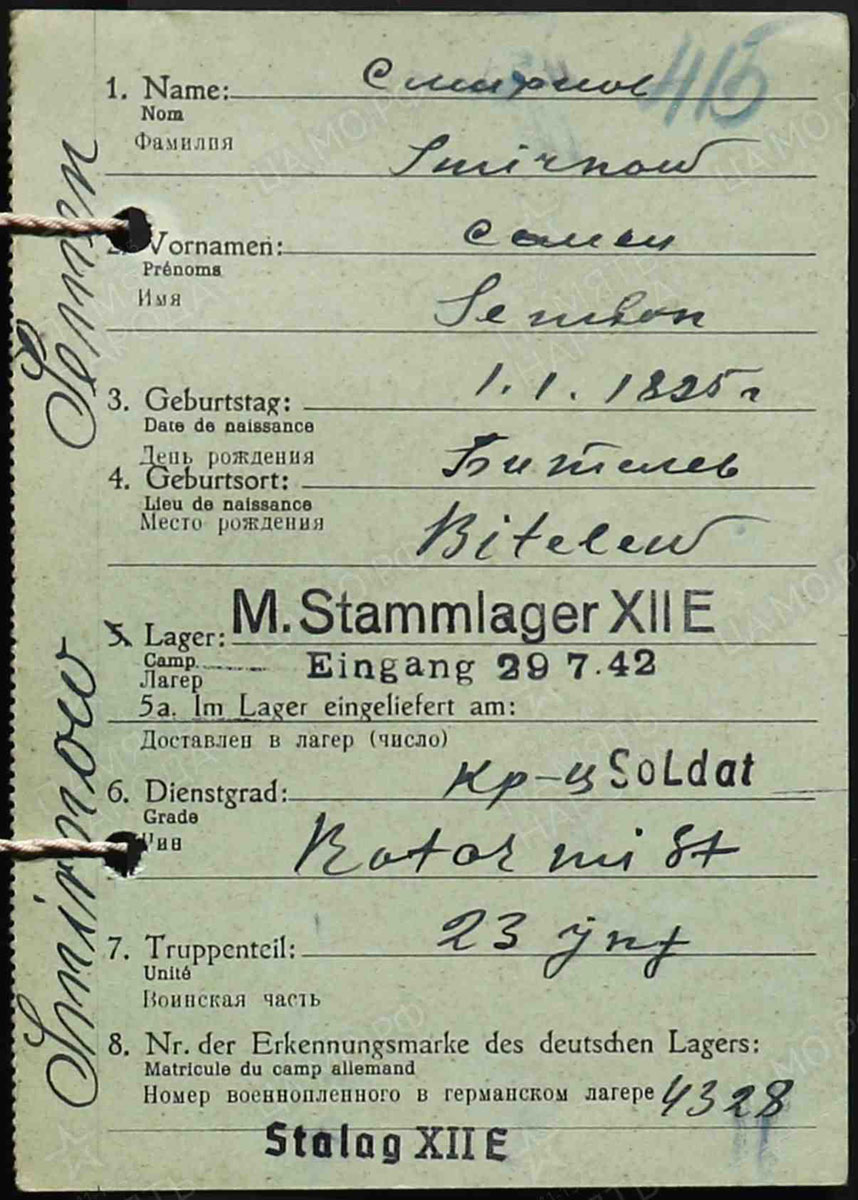 415
1. Name: Смирнов
Nom
Фамилия Smirnow
2. Vornamen: Семен
Prénoms
Имя Semion
3. Geburtstag: 1.1. 1895 г
Date de naissance
День рождения
4. Geburtsort: Бителев
Lieu de naissance
Место рождения Bitelew
5. Lager: M. Stammlager XII E
Camp
Лагерь Eingang 29 7.42
5a. Im Lager eingeliefert am:
Доставлен в лагер (число)
6. Dienstgrad: кр-ц Soldat
Grade
Чин Rotarmist
7. Truppenteil: 23 Jnf
Unité
Воинская часть
8. Nr. der Erkennungsmarke des deutschen Lagers:
Matricule du camp allemand
Номер военнопленного в германском лагере 4328
Stalag XII E
Smirnow Semen